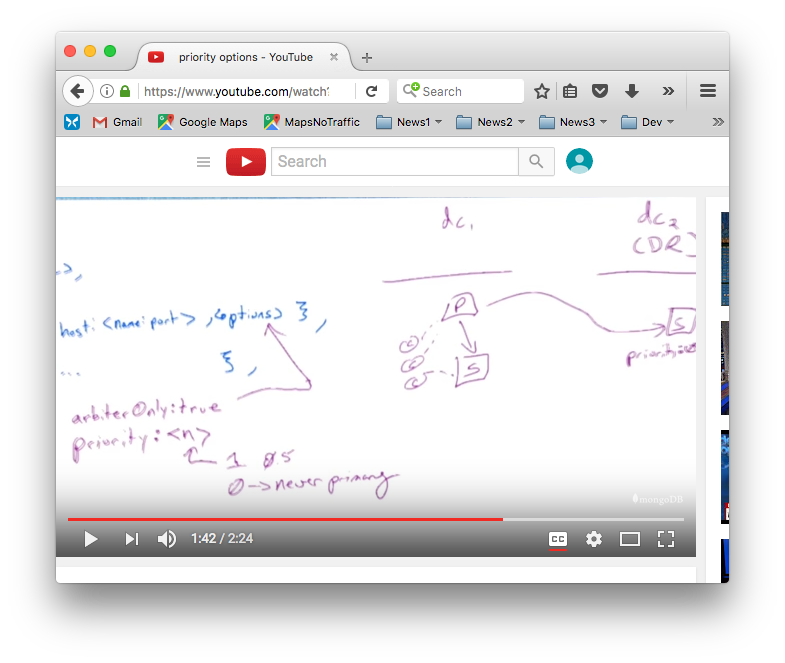 priority options - YouTube
https://www.youtube.com/watch?
Search
Gmail
Google Maps
MapsNoTraffic
News1
News2
News3
Dev
Search
dc1
dc2
(DR)
>,
host: <name:port> , <options> } ,
P
S
C
C
C
S
priority:0
} ,
...
arbiterOnly:true
priority: <n>
1 0.5
0 -> never primary
mongoDB
1:42 / 2:24
CC